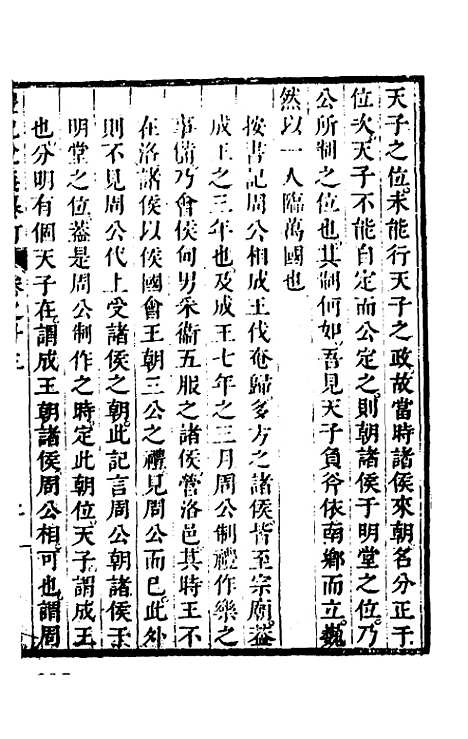 天子之位未能行天子之政故當時諸侯來朝名分正于
位次天子不能自定而公定之則朝諸侯于明堂之位乃
公所制之位也其制何如吾見天子負斧依南鄉而立巍
然以一人臨萬國也
按書記周公相成王伐奄歸多方之諸侯皆至宗廟葢
成王之三年也及成王七年之三月周公制禮作樂之
事備乃會侯甸男采衞五服之諸侯營洛邑其時王不
在洛諸侯以侯國會王朝三公之禮見周公而已此外
則不見周公代上受諸侯之朝此記言周公朝諸侯于
明堂之位葢是周公制作之時定此朝位天子謂成王
也分明有個天子在謂成王朝諸侯周公相可也謂周